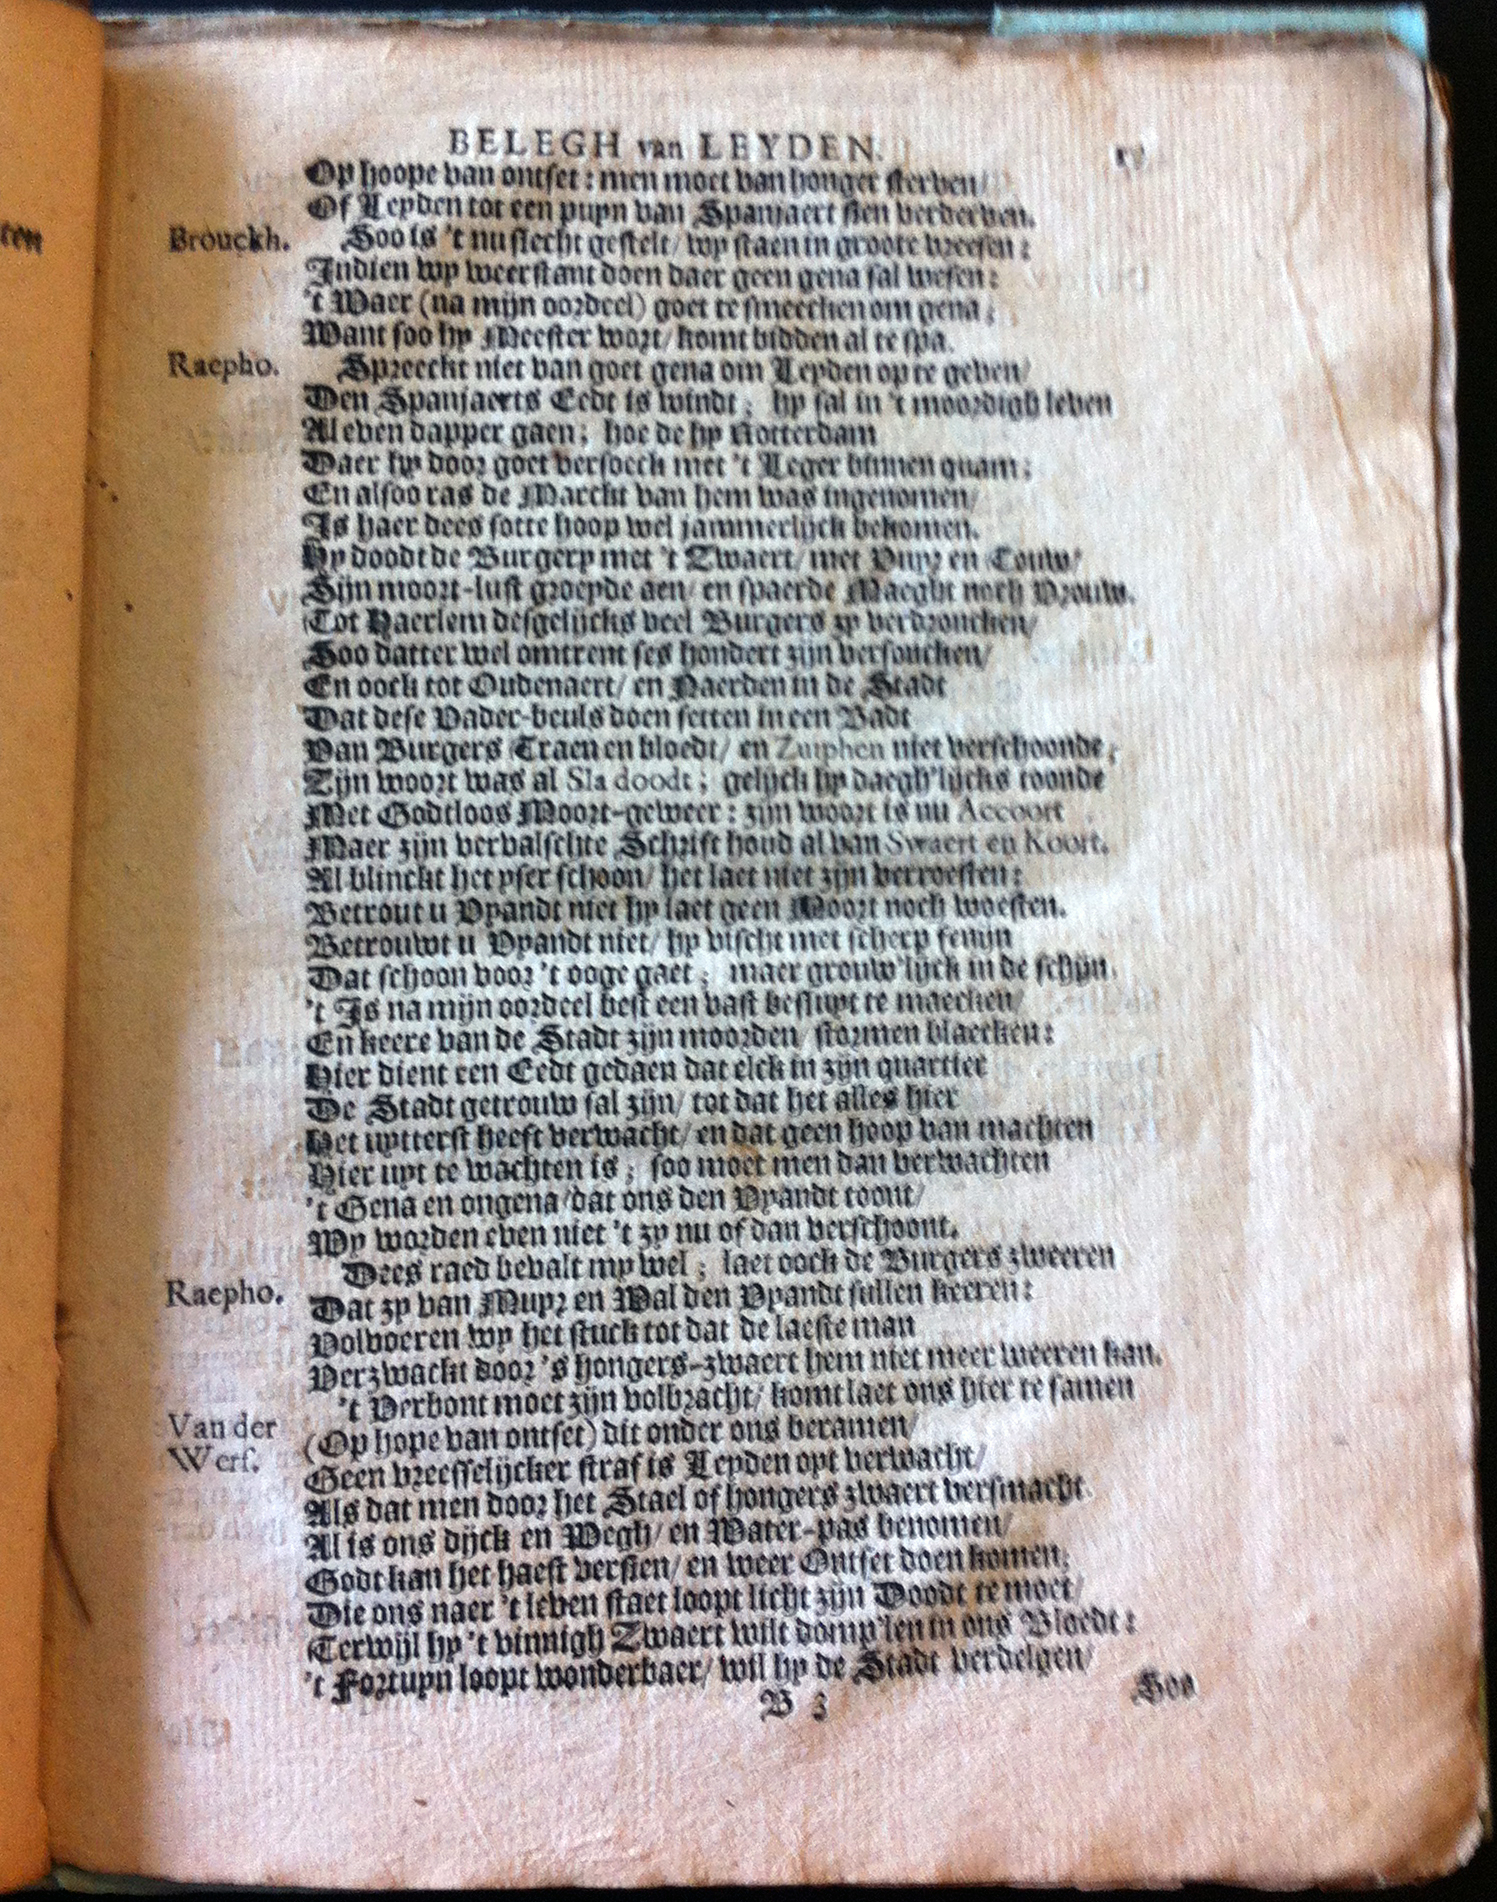 ten
BELEGH van LEYDEN.
Op hoope van ontset : men moet van honger sterven/
Of Leyden tot een puyn van Spanjaert sien verderven.
Brouckh. Soo is 't nu slecht gestelt/ wy staen in groote vreesen :
Indien wy weerstant doen daer geen gena sal wesen :
't Waer (na mijn oordeel) goet te smeecken om gena ;
Want soo hy Meester wort/ komt bidden al te spa.
Raepho. Spreeckt niet van goet gena om Leyden op te geven/
Den Spanjaerts Eedt is windt ; hy sal in 't moordigh leven
Al even dapper gaen ; hoe de hy Rotterdam
Daer hy door goet versoeck met 't Leger binnen quam ;
En alsoo ras de Marckt van hem was ingenomen/
Is haer dees sotte hoop wel jammerlijck bekomen.
Hy doodt de Burgery met 't Zwaert/ met Vuyr en Touw/
Sijn moort-lust groeyde aen/ en spaerde Maeght noch Vrouw.
Tot Haerlem desgelijcks veel Burgers zy verdroncken/
Soo datter wel omtrent ses hondert zijn versoncken/
En oock tot Oudenaert/ en Naerden in de Stadt
Dat dese Vader-beuls doen setten in een Badt
Van Burgers Traen en bloedt/ en Zutphen niet verschoonde ;
Zijn woort was al Sla doodt ; gelijck hy daegh'lijcks toonde
Met Godtloos Moort-geweer : zijn woort is nu Accoort
Maer zijn vervalschte Schrift houd al van Swaert en Koort.
Al blinckt het yser schoon/ het laet niet zijn verroesten :
Betrout u Vyandt niet hy laet geen Moort noch woesten.
Betrouwt u Vyandt niet/ hy vischt met scherp fenijn
Dat schoon voor 't ooge gaet ; maer grouw'lijck in de schijn.
't Is na mijn oordeel best een vast besluyt te maecken/
En keere van de Stadt zijn moorden/ stormen blaecken :
Hier dient een Eedt gedaen dat elck in zijn quartier
De Stadt getrouw sal zijn/ tot dat het alles hier
Het uytterst heeft verwacht/ en dat geen hoop van machten
Hier uyt te wachten is ; soo moet men dan verwachten
't Gena en ongena/ dat ons den Vyandt toont/
Wy worden even niet 't zy nu of dan verschoont.
Dees raed bevalt my wel ; laet oock de Burgers zweeren
Raepho. Dat zy van Muyr en Wal den Vyandt sullen keeren :
Volvoeren wy het stuck tot dat de laeste man
Verzwackt door 's hongers-zwaert hem niet meer weeren kan.
't Verbont moet zijn volbracht/ komt laet ons hier te samen
Van der (Op hope van ontset) dit onder ons beramen/
Werf. Geen vreesselijcker straf is Leyden opt verwacht/
Als dat men door het Stael of hongers zwaert versmacht.
Al is ons dijck en Wegh/ en Water-pas benomen/
Godt kan het haest versien/ en weer Ontset doen komen;
Die ons naer 't leven staet loopt licht zijn Doodt te moet/
Terwijl hy 't vinnigh Zwaert wilt domp'len in ons Bloedt :
't Fortuyn loopt wonderbaer/ wil hy de Stadt verdelgen/
B 3 Soo